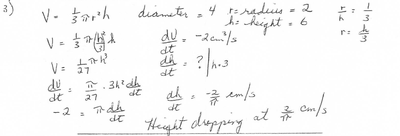 3) V = 1/3 πr²h diameter = 4 r = radius = 2 r/h = 1/3
h = height = 6 r = h/3
V = 1/3 π(h²/3²)h dV/dt = -2cm³/s
V = 1/27 πh³ dh/dt = ? | h=3
dV/dt = π/27 · 3h² dh/dt dh/dt = -2/π cm/s
-2 = π dh/dt
Height dropping at 2/π cm/s